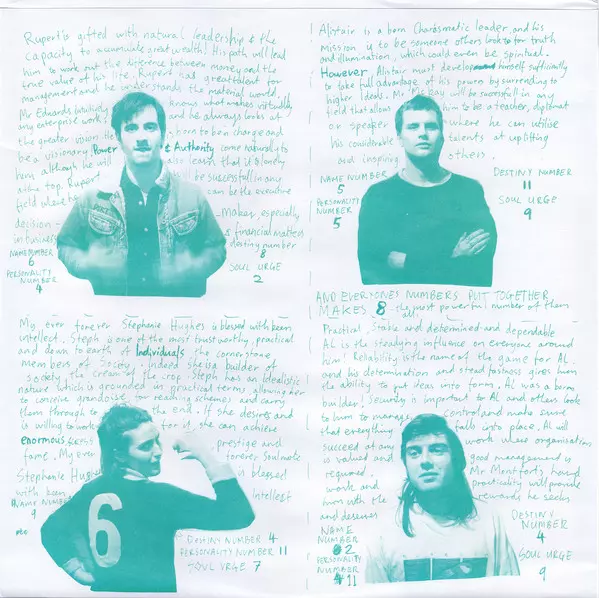 Rupert is gifted with natural leadership & the
capacity to accumulate great wealth! His path will lead
him to work out the difference between money and the
true value of his life. Rupert has great talent for
management and he understands the material world.
Mr Edwards intuitively knows what makes virtually
any enterprise work and he always looks at
the greater vision. He born to be in charge and
be a visionary Power & Authority come naturally to
him although he will also learn that it's lonely
at the top. Rupert will be successful in any
field where he can be the executive
decision - Makes especially
in business & financial matters
NAME NUMBER
6
destiny number
8
PERSONALITY
NUMBER
4
SOUL URGE
2
Alistair is a born Charismatic leader, and his
mission is to be someone others look to for truth
and illumination, which could even be spiritual.
However, Alistair must develop himself sufficiently
to take full advantage of his power by surrendering to
higher ideals. Mr McKay will be successful in any
field that allows him to be a teacher, diplomat
or speaker where he can utilise
his considerable talents at uplifting
and inspiring others.
NAME NUMBER
5
DESTINY NUMBER
11
PERSONALITY
NUMBER
5
SOUL URGE
9
AND EVERYONES NUMBERS PUT TOGETHER
MAKES 8 the most powerful number of them
all!
My ever forever Stephanie Hughes is blessed with keen
intellect. Steph is one of the most trust worthy, practical
and down to earth of Individuals the cornerstone
members of Society. Indeed she is a builder of
society the cream of the crop. Steph has an idealistic
nature which is grounded in practical terms, allowing her
to conceive grandoise far reaching schemes and carry
them through to the end. If she desires and
is willing to work for it, she can achieve
enormous success prestige and
fame. My ever forever, soulmate
Stephanie Hughes is blessed
with keen Intellect
NAME NUMBER
9
DESTINY NUMBER 4
PERSONALITY NUMBER 11
SOUL URGE 7
6
Practical, Stable and determined and dependable
AL is the steadying influence on everyone around
him! Reliability is the name of the game for AL.
and his determination and steadfastness gives him
the ability to put ideas into form. AL was a born
builder! Security is important to AL and others look
to him to manage, Control and make sure
that everything falls into place. AL will
succeed at any work where organisation
is valued and good management is
required. Mr Montfort's hard
work and practicality will provide
him with the rewards he seeks
and deserves
DESTINY
NUMBER
4
NAME
NUMBER
2
SOUL URGE
9
PERSONALITY
NUMBER
11